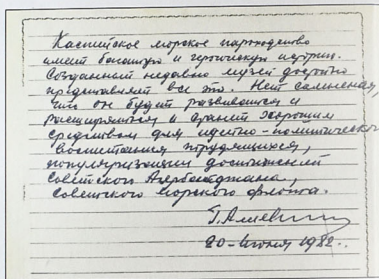 Каспийское морское пароходство
имеет богатую и героическую историю.
Созданный недавно музей достойно
представляет все это. Нет сомнения,
что он будет развиваться и
расширяться и станет хорошим
средством для идейно-политического
воспитания трудящихся,
популяризации достижений
Советского Азербайджана,
советского морского флота.
Г. Алиев
20 – июня 1982 г.